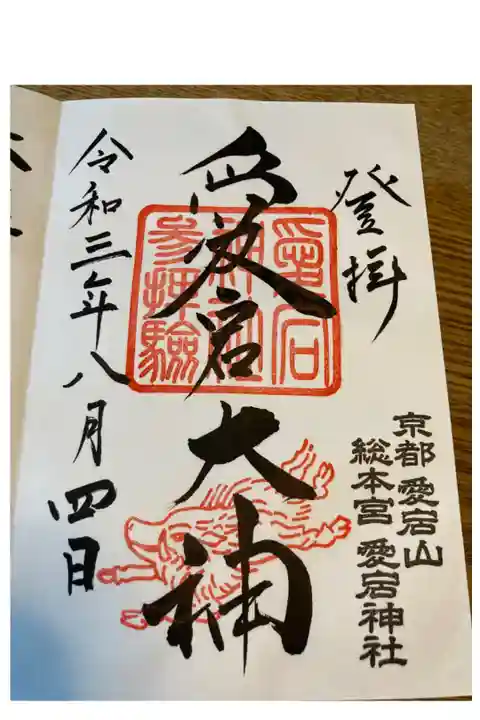 登拝
京都愛宕山
総本宮 愛宕神社
愛宕大神
愛宕
神社
参拝験
令和三年八月四日